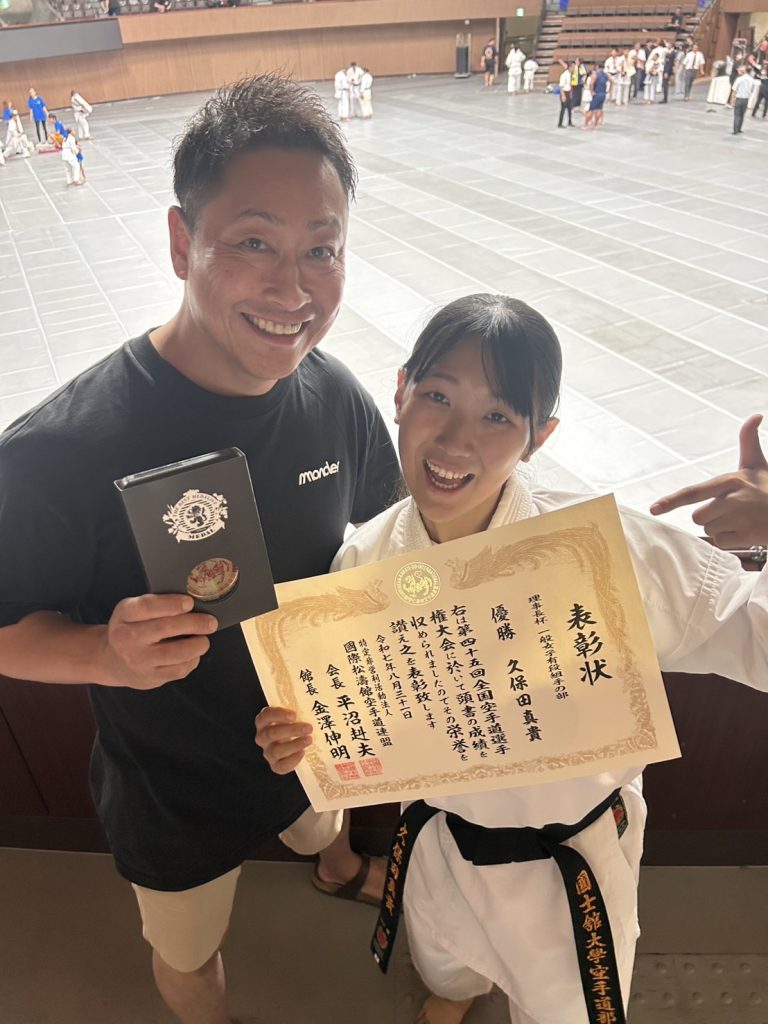 MEDAL
monder
表彰状
理事長杯 一般女子有段組手の部
優勝 久保田真貴
右は第四十五回全国空手道選手
権大会に於いて頭書の成績を
収められましたのでその栄誉を
讃え之を表彰致します
令和七年八月三十一日
特定非営利活動法人
國際松濤館空手道連盟
会長 平沼赳夫
館長 金澤伸明
久保田真貴
國士舘大學空手道部